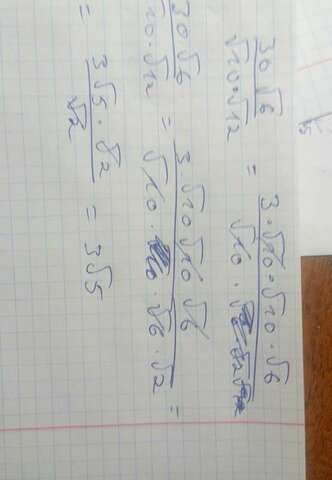 30√6 / √10·√12 = 3·√10·√10·√6 / √10·
30√6 / √10·√12 = 3·√10√10√6 / √10·√6·√2 =
= 3√5·√2 / √2 = 3√5